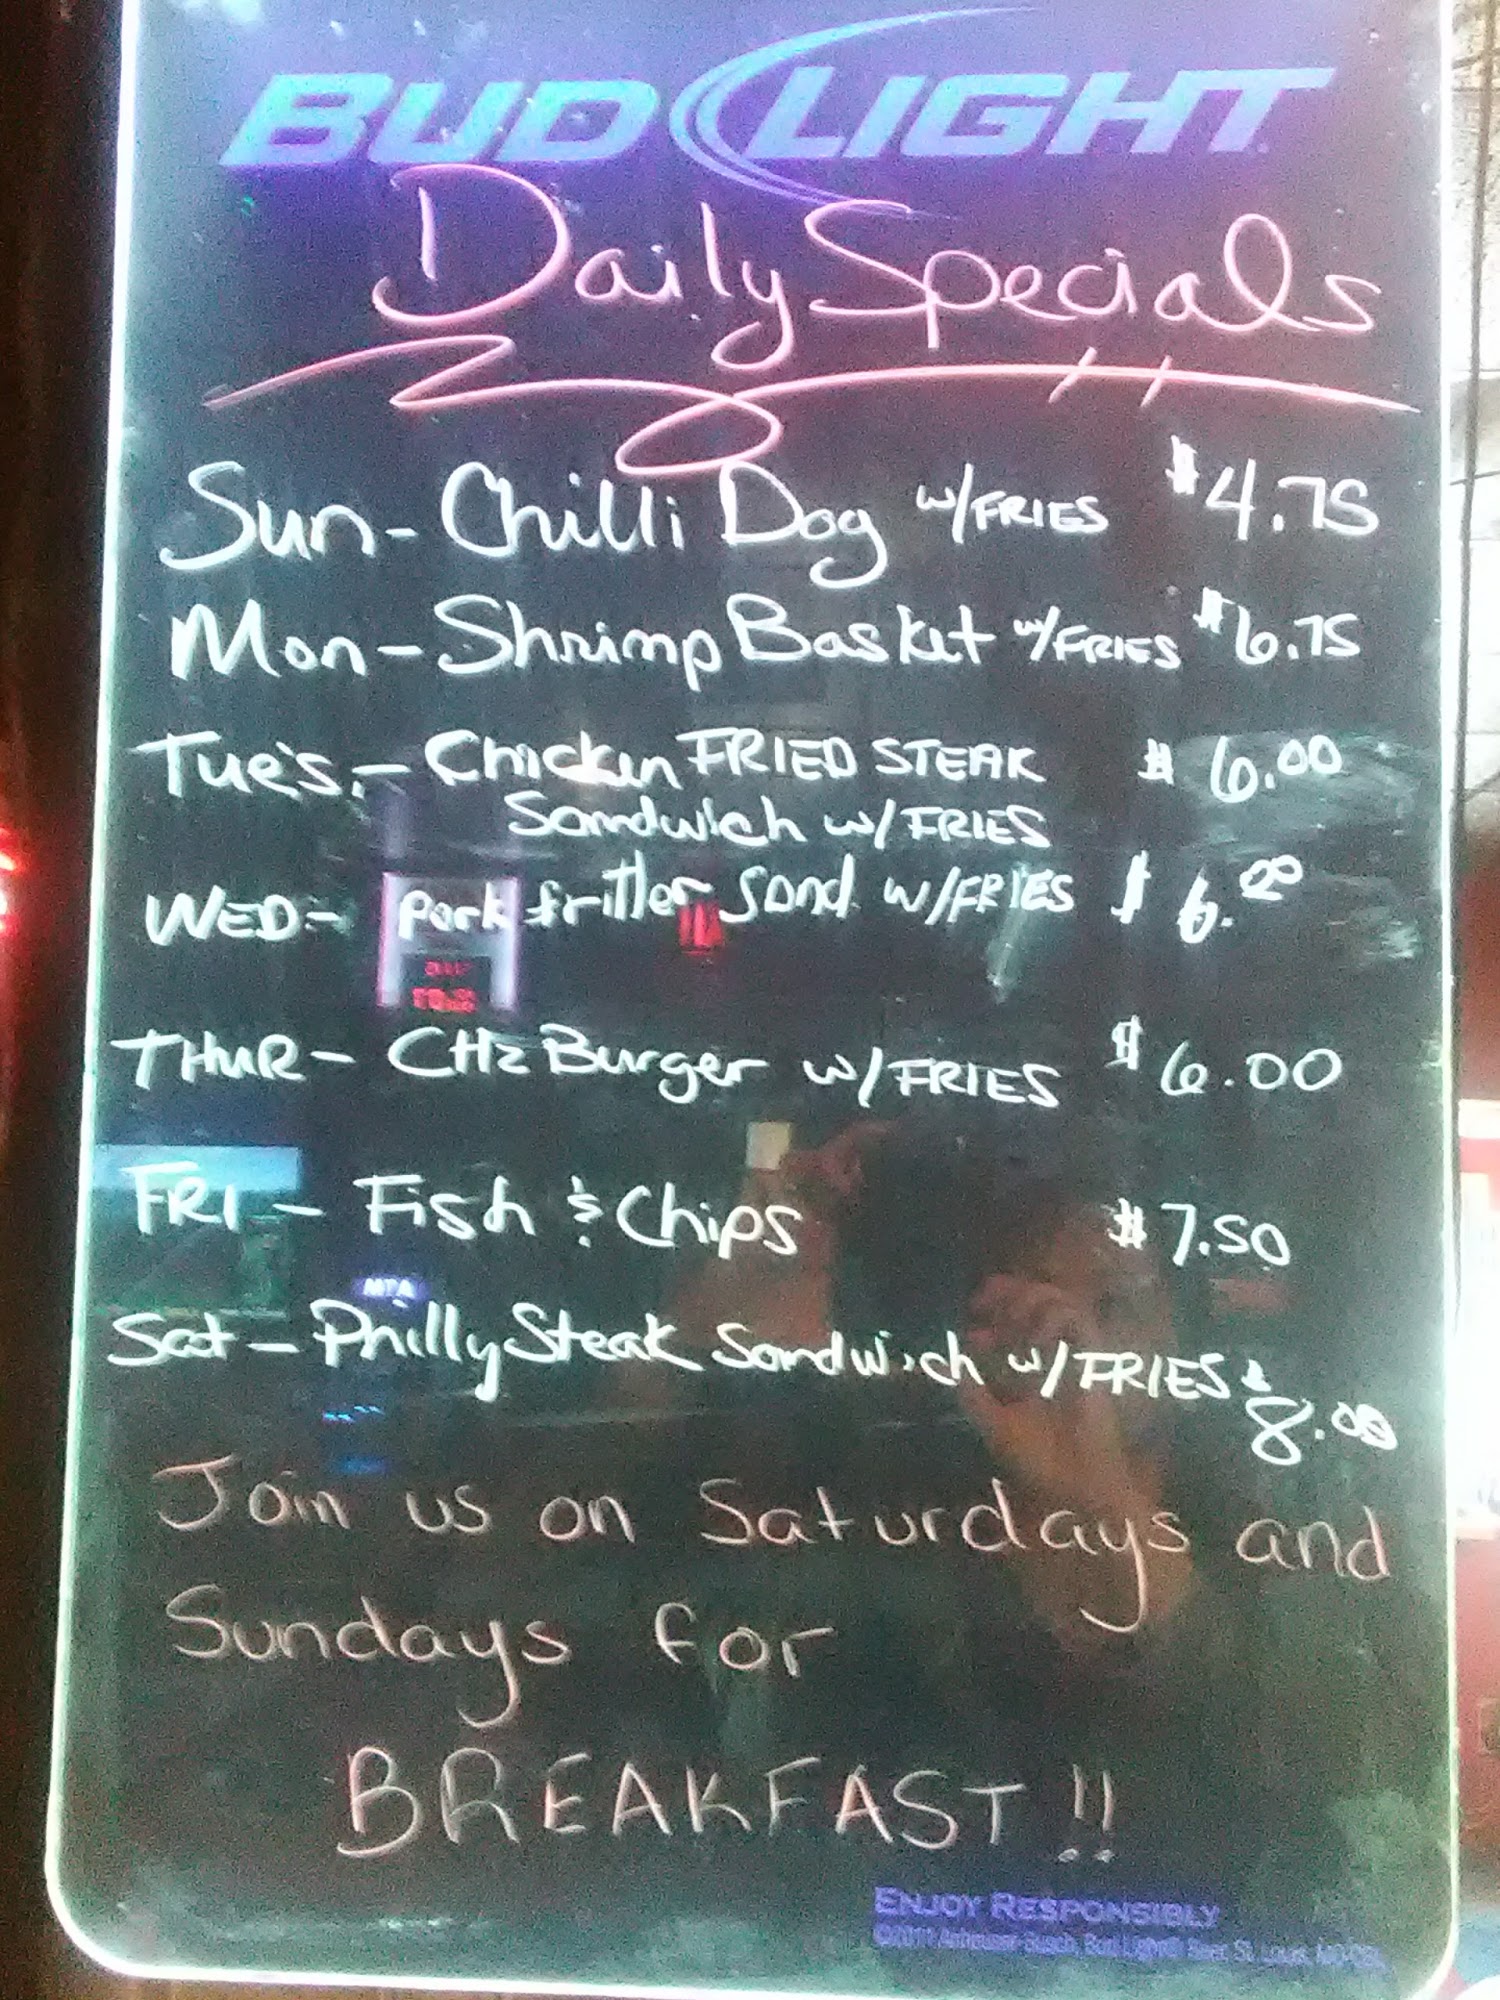 BUD LIGHT
Daily Specials
Sun - Chilli Dog w/FRIES $4.75
Mon - Shrimp Basket w/FRIES $6.75
Tues. - Chicken FRIED STEAK $6.00
Sandwich w/FRIES
WED - Pork fritter Sand. w/FRIES $6.00
THUR - CHz Burger w/FRIES $6.00
FRI - Fish & Chips $7.50
Sat - Philly Steak Sandwich w/FRIES $
8.00
Join us on Saturdays and
Sundays for
BREAKFAST!!
ENJOY RESPONSIBLY
©2011 Anheuser-Busch, Bud Light® Beer, St. Louis, MO